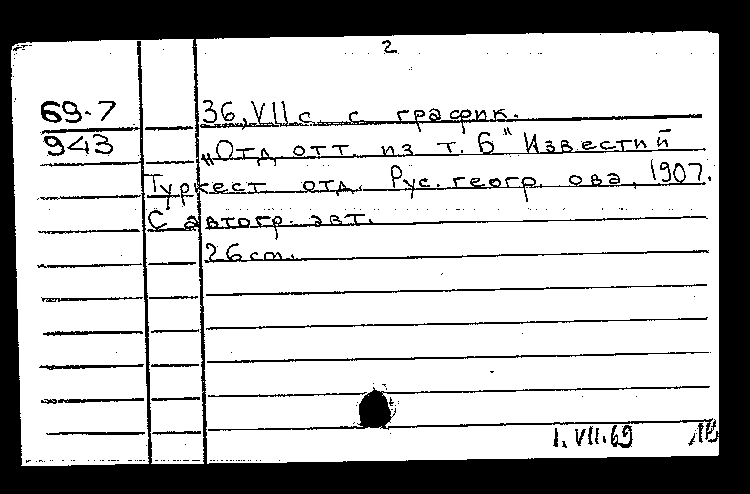 2
69-7 36, VII с. с график.
943 „Отд. отт. из т. 6" Известий
Туркест. отд. Рус. геогр. о-ва, 1907.
С автогр. авт.
26 cm.
1.VII.69